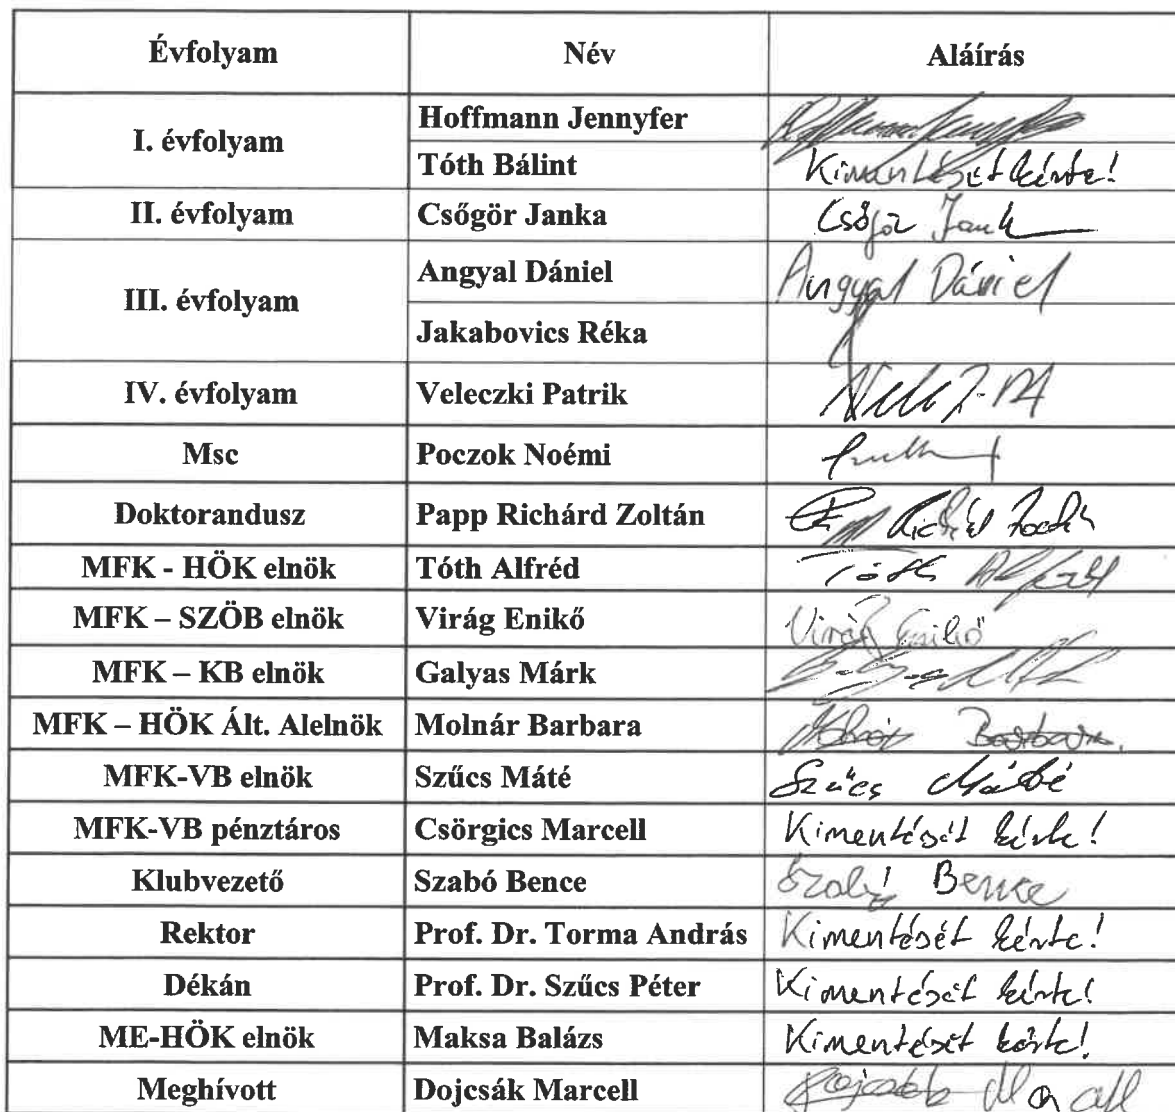 Évfolyam Név Aláírás
I. évfolyam
Hoffmann Jennyfer
Tóth Bálint Kimentését kérte!
II. évfolyam Csőgör Janka Csőgör Janka
III. évfolyam
Angyal Dániel Angyal Dániel
Jakabovics Réka
IV. évfolyam Veleczki Patrik
Msc Poczok Noémi
Doktorandusz Papp Richárd Zoltán Papp Richárd Zoltán
MFK - HÖK elnök Tóth Alfréd Tóth Alfréd
MFK – SZÖB elnök Virág Enikő Virág Enikő
MFK – KB elnök Galyas Márk
MFK – HÖK Ált. Alelnök Molnár Barbara Molnár Barbara
MFK-VB elnök Szűcs Máté Szűcs Máté
MFK-VB pénztáros Csörgics Marcell Kimentését kérte!
Klubvezető Szabó Bence Szabó Bence
Rektor Prof. Dr. Torma András Kimentését kérte!
Dékán Prof. Dr. Szűcs Péter Kimentését kérte!
ME-HÖK elnök Maksa Balázs Kimentését kérte!
Meghívott Dojcsák Marcell Dojcsák Marcell